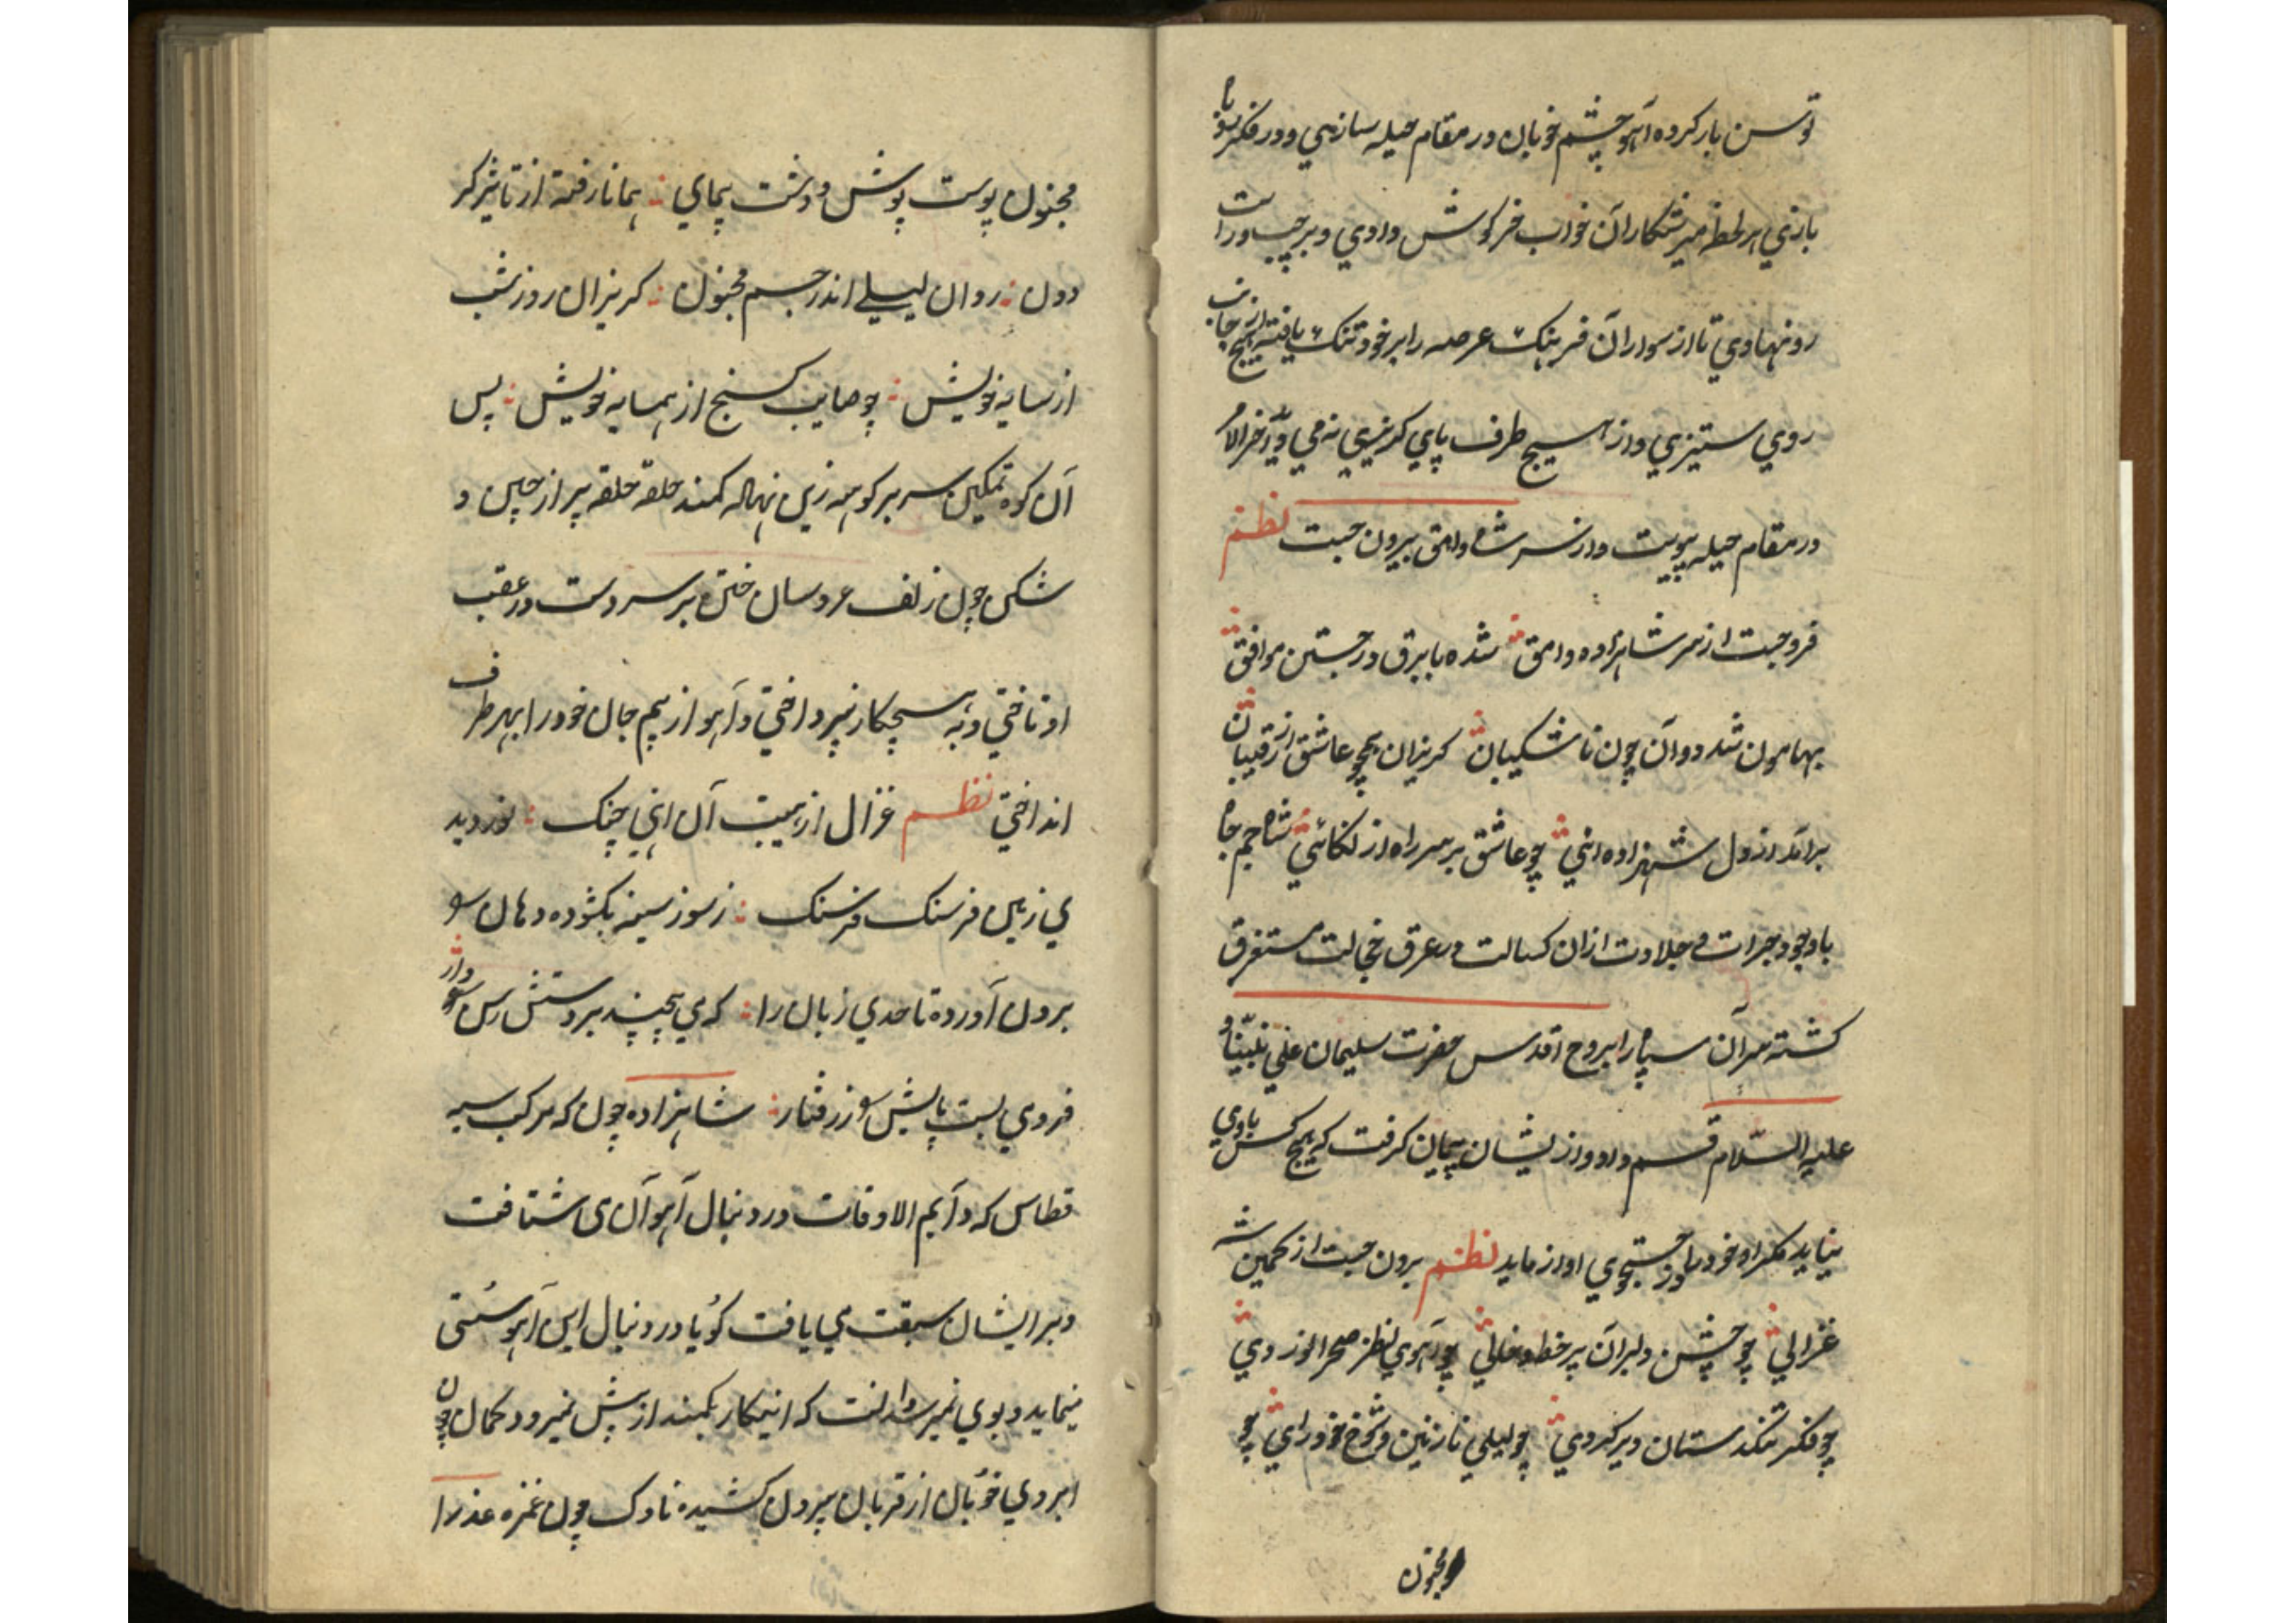 توسن بار کرده آهو چشم خوبان در مقام حیله سازی و در فکر
بازی هر لحظه میر شکاران خواب خرکوش دادی و بر چپ و راست
رو نهادی تا از سواران فرهنک عرصه را بر خود تنک یافته از هیچ جانب
روی ستیزی و از هیچ طرف پای کریزی نه می دید آخر الامر
در مقام حیله پیوست و از سر شاه وامق بیرون جست نظم
فرو جست از سر شاهزاده وامق شده با برق در جستن موافق
بهامون شد دوان چون ناشکیبان کریزان همچو عاشق از رقیبان
برآمد از دل شهزاده چو عاشق بر سر راه از شاه جم جاه
باوجود جرات و جلادت ازان کسالت در عرق خجالت مستغرق
کشته سران سپاه را بروح اقدس حضرت سلیمان علی نبینا و
علیه السلام قسم داد و از ایشان پیمان کرفت که هیچ کس باوی
نیاید مکر او خود را در جستجوی او از ماید نظم برون جست از کمین شه
غزالی چو چشمن دلبران پر خط و خالی چو آهوی نظر صحرا نوردی
چو فکر تنکدستان دیر کردی چو لیلی نازنین و شوخ خودرای چو
مجنون
مجنون پوست پوش و دشت پیمای همانا رفته از تاثیر کر
دون روان لیلی اندر جسم مجنون کریزان روز شب
از سایه خویش چو صاحب کنج از همسایه خویش پس
آن کوه تمکین سر بر کوهه زین نهاله کمند حلقه حلقه پر از چین و
شکن چون زلف عروسان ختن بر سر دست در عقب
او تاختی و به هیچکار نپرداختی و آهو از بیم جان خود را بهر طرف
انداختی نظم غزال از هیبت آن چنک نوردید
ی زمین فرسنک فرسنک ز سوز سینه بکشوده دهان
برون آورده تا حدی زبان را که می پیچید بر دستش رسن وار
فرو می بست پایش را ز رفتار شاهزاده چون که مرکب سیه
قطاس که دایم الاوقات در دنبال آهوان می شتافت
و بر ایشان سبقت می یافت کویا در دنبال این آهو سستی
مینماید و بوی نمیرسد دانست که اینکار بکمند از پیش نمیرود کمان چون
ابروی خوبان از قربان بیرون کشیده ناوک چون غمزه عذرا